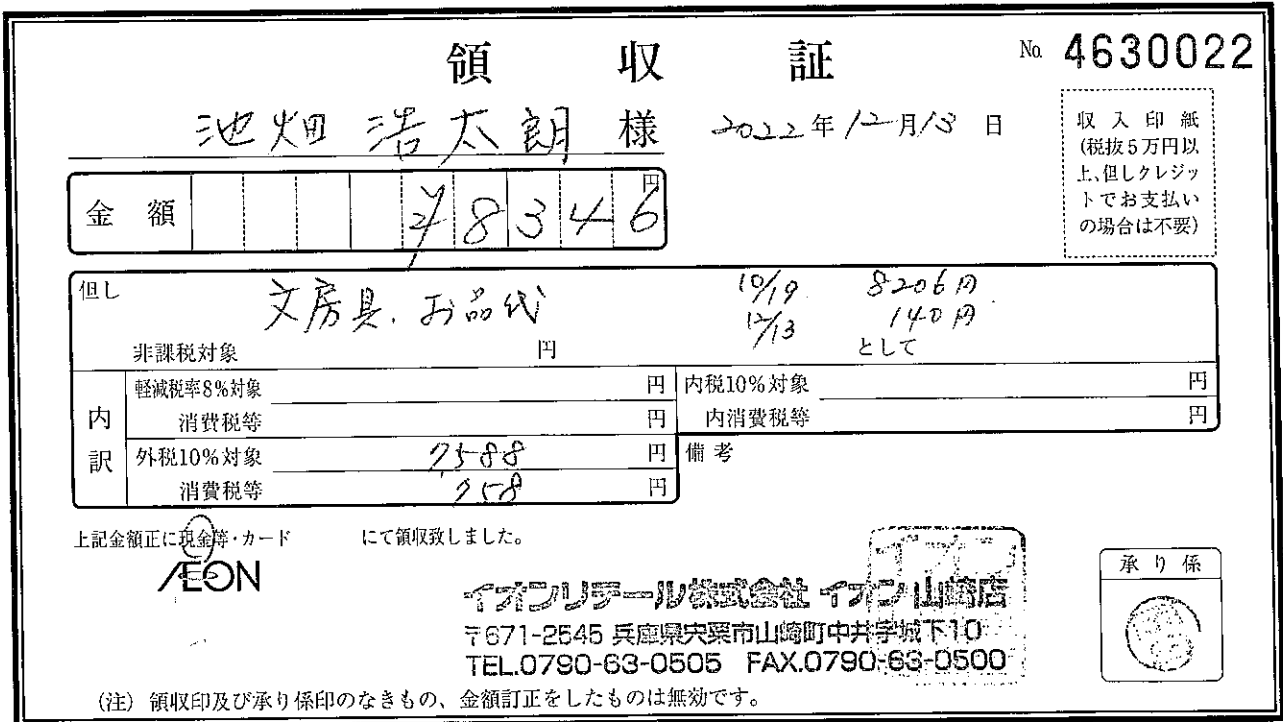 領収証
No. 4630022
池畑 浩太朗 様
2022年12月13日
収入印紙
(税抜5万円以
上、但しクレジッ
トでお支払い
の場合は不要)
金額 ¥8346円
但し 文房具、お品代
10/19 8206円
12/13 140円
非課税対象 円 として
内訳
軽減税率8%対象 円
消費税等 円
外税10%対象 7588円
消費税等 758円
内税10%対象 円
内消費税等 円
備考
上記金額正に現金等・カード にて領収致しました。
ÆON
イオンリテール株式会社 イオン山崎店
〒671-2545 兵庫県宍粟市山崎町中井字城下10
TEL.0790-63-0505 FAX.0790-63-0500
承り係
(注) 領収印及び承り係印のなきもの、金額訂正をしたものは無効です。